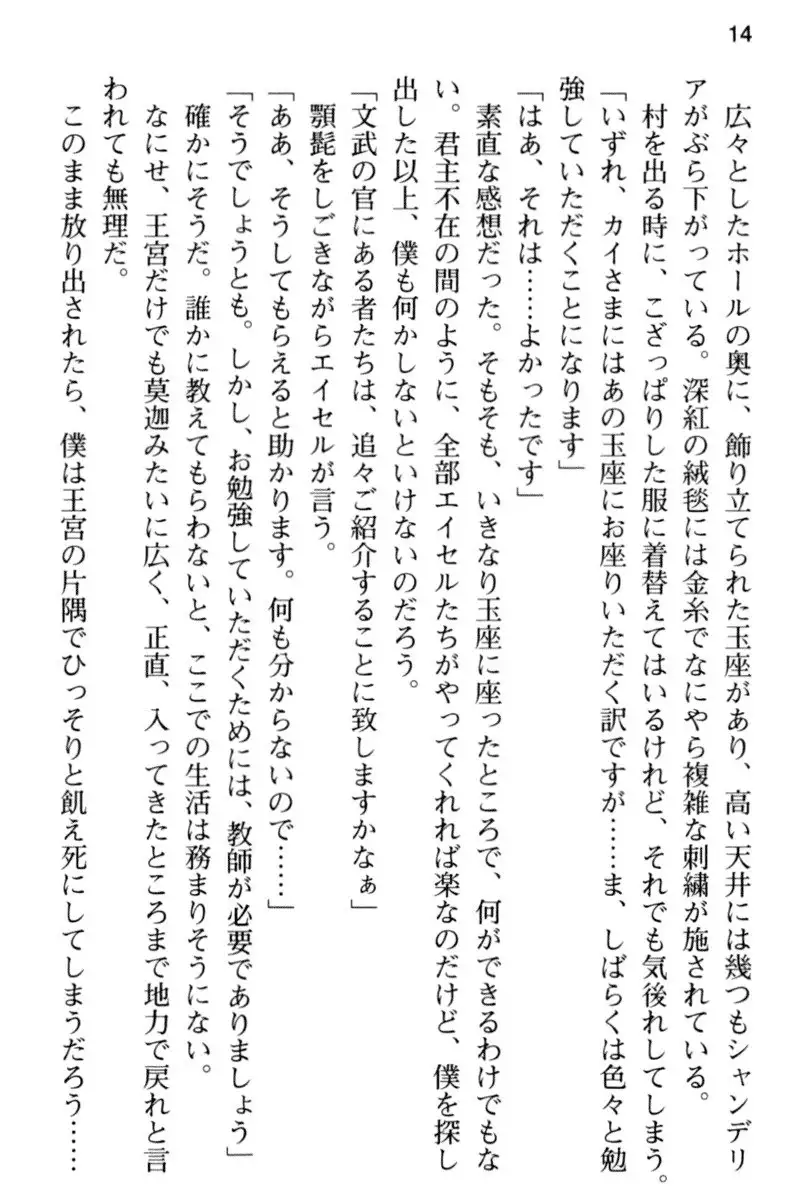 14
広々としたホールの奥に、飾り立てられた玉座があり、高い天井には幾つもシャンデリ
アがぶら下がっている。深紅の絨毯には金糸でなにやら複雑な刺繍が施されている。
村を出る時に、こざっぱりした服に着替えてはいるけれど、それでも気後れしてしまう。
「いずれ、カイさまにはあの玉座にお座りいただく訳ですが……ま、しばらくは色々と勉
強していただくことになります」
「はあ、それは……よかったです」
素直な感想だった。そもそも、いきなり玉座に座ったところで、何ができるわけでもな
い。君主不在の間のように、全部エイセルたちがやってくれれば楽なのだけど、僕を探し
出した以上、僕も何かしないといけないのだろう。
「文武の官にある者たちは、追々ご紹介することに致しますかなぁ」
顎髭をしごきながらエイセルが言う。
「ああ、そうしてもらえると助かります。何も分からないので……」
「そうでしょうとも。しかし、お勉強していただくためには、教師が必要でありましょう」
確かにそうだ。誰かに教えてもらわないと、ここでの生活は務まりそうにない。
なにせ、王宮だけでも莫迦みたいに広く、正直、入ってきたところまで地力で戻れと言
われても無理だ。
このまま放り出されたら、僕は王宮の片隅でひっそりと飢え死にしてしまうだろう……